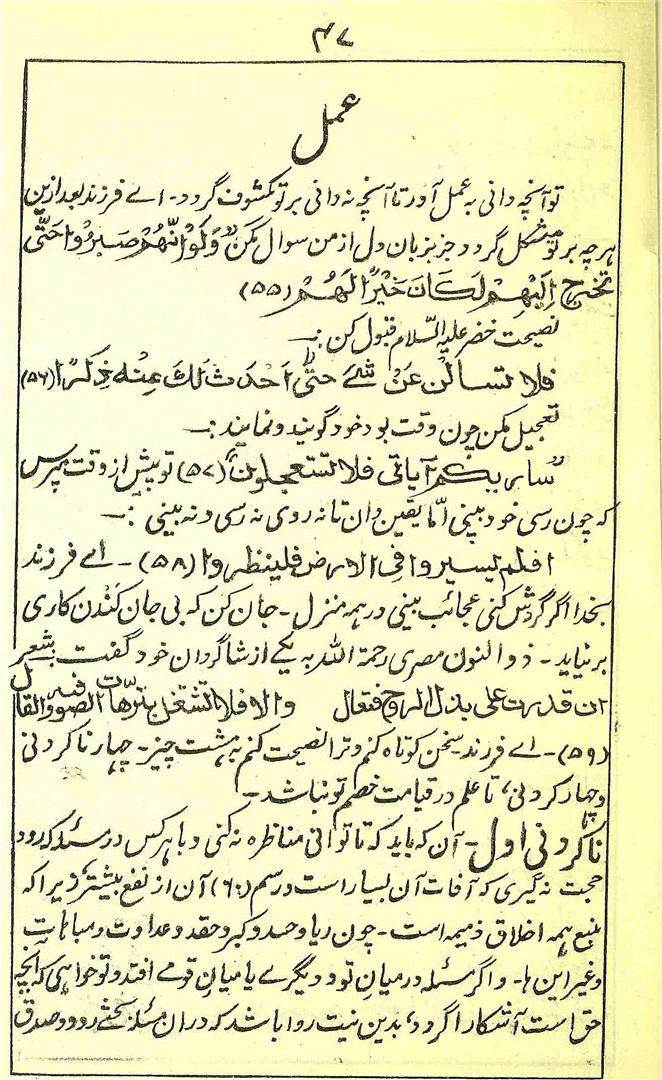 ۴۷
عمل
تو آنچہ دانی بہ عمل آور تا آنچہ نہ دانی بر تو مکشوف گردد۔ اے فرزند بعد ازین
ہرچہ بر تو مشکل گردد جز بزبان دل از من سوال مکن وَلَوْ اَنَّهُمْ صَبَرُوْا حَتّٰى
تخرج اِلَيْهِمْ لَكَانَ خَيْرًا لَهُمْ (۵۵)
نصیحت خضر علیہ السّلام قبول کن :۔
فلا تسالن عَنْ شَےْ حتّٰی اَحْدث لَكَ مِنْه ذِكْرًا (۵۶)
تعجیل مکن چون وقت بود خود گویند و نمایند :۔
ساریکم آیاتی فلا تستعجلون (۵۷) تو پیش از وقت مپرس
کہ چون رسی خود بینی امّا یقین دان تا نہ روی نہ رسی و نہ بینی :۔
افلم یسیروا فی الارض فلینظروا (۵۸) ۔ اے فرزند
بخدا اگر گردش کنی عجائب بینی در ہمہ منزل ۔ جان کن کہ بی جان کَندن کاری
بر نیاید ۔ ذوالنون مصری رحمة اللہ بہ یکے از شاگردان خود گفت شعر
ان قدرت علی بذل الروح فتعال والا فلا تشتغل بترّهات الصوفیه والقال
(۵۹) ۔ اے فرزند سخن کوتاہ کنم و ترا نصیحت کنم بہ ہشت چیز ۔ چہار ناکردنی
و چہار کردنی، تا علم در قیامت خصم تو نباشد ۔
ناکردنی اول ۔ آن کہ باید کہ تا توانی مناظرہ نہ کنی و با ہر کس در مسئلہ کہ رود
حجت نہ گیری کہ آفات آن بسیار است و رسم (۶۰) آن از نفع بیشتر، زیرا کہ
منبع ہمہ اخلاق ذمیمہ است ۔ چون ریا و حسد و کبر و حقد و عداوت و مباہات
و غیر این ہا ۔ و اگر مسئلہ در میان تو و دیگرے یا میان قومے افتد و تو خواہی کہ آنچہ
حق است آشکارا گردد، بدین نیت روا باشد کہ دران مسئلہ بحثے رود و صدق